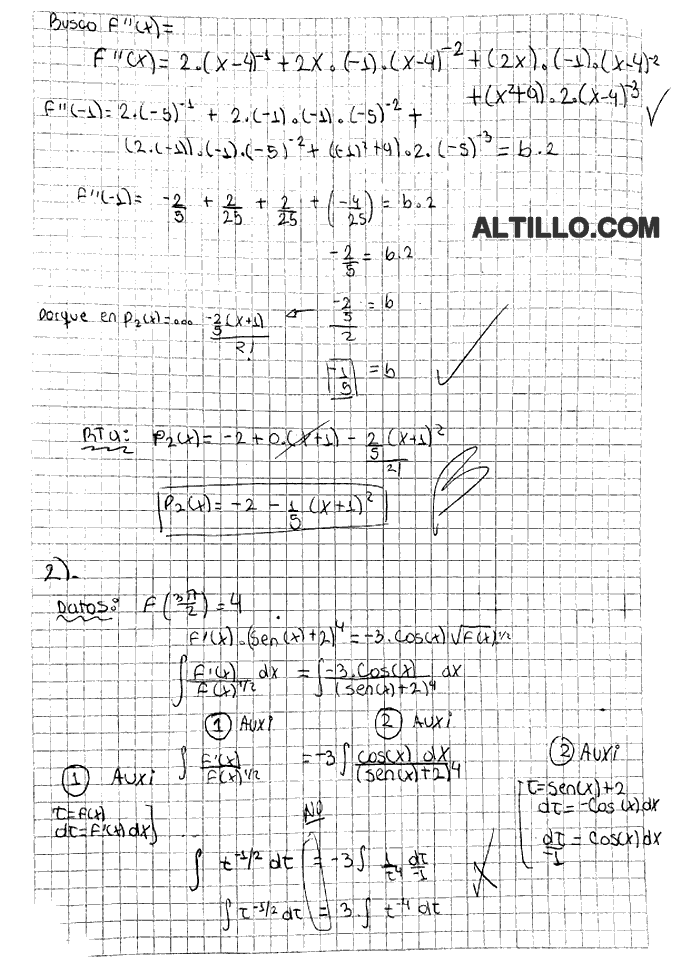 Busco F''(x)=
F''(x) = 2.(x-4)⁻¹ + 2x.(-1).(x-4)⁻² + (2x).(-1).(x-4)⁻²
+(x²+9).2.(x-4)⁻³
F''(-1)=2.(-5)⁻¹ + 2.(-1).(-1).(-5)⁻² +
(2.(-1)).(-1).(-5)⁻² + ((-1)²+9).2.(-5)⁻³ = b.2
F''(-1)= -2/5 + 2/25 + 2/25 + (-4/25) = b.2
ALTILLO.COM
-2/5 = b.2
Porque en P₂(x)=... -2/5 (x+1) / 2! ← -2/5 / 2 = b
-1/5 = b
RTA: P₂(x)= -2 + 0.(x+1) - 2/5 (x+1)² / 2!
P₂(x) = -2 - 1/5 (x+1)²
2).
Datos: F(3π/2) = 4
F'(x).(sen(x)+2)⁴ = -3.cos(x) √F(x) 1/2
∫ F'(x)/F(x)^1/2 dx = ∫ -3.cos(x)/(sen(x)+2)⁴ dx
① Auxi ② Auxi
∫ F'(x)/F(x)^1/2 = -3 ∫ cos(x) dx/(sen(x)+2)⁴
① Auxi
t=F(x)
dt=F'(x) dx
② Auxi
t=sen(x)+2
dt=-cos(x)dx
dt/-1 = cos(x)dx
NO
∫ t^-1/2 dt = -3 ∫ 1/t⁴ dt/-1
∫ t^-1/2 dt = 3. ∫ t⁻⁴ dt